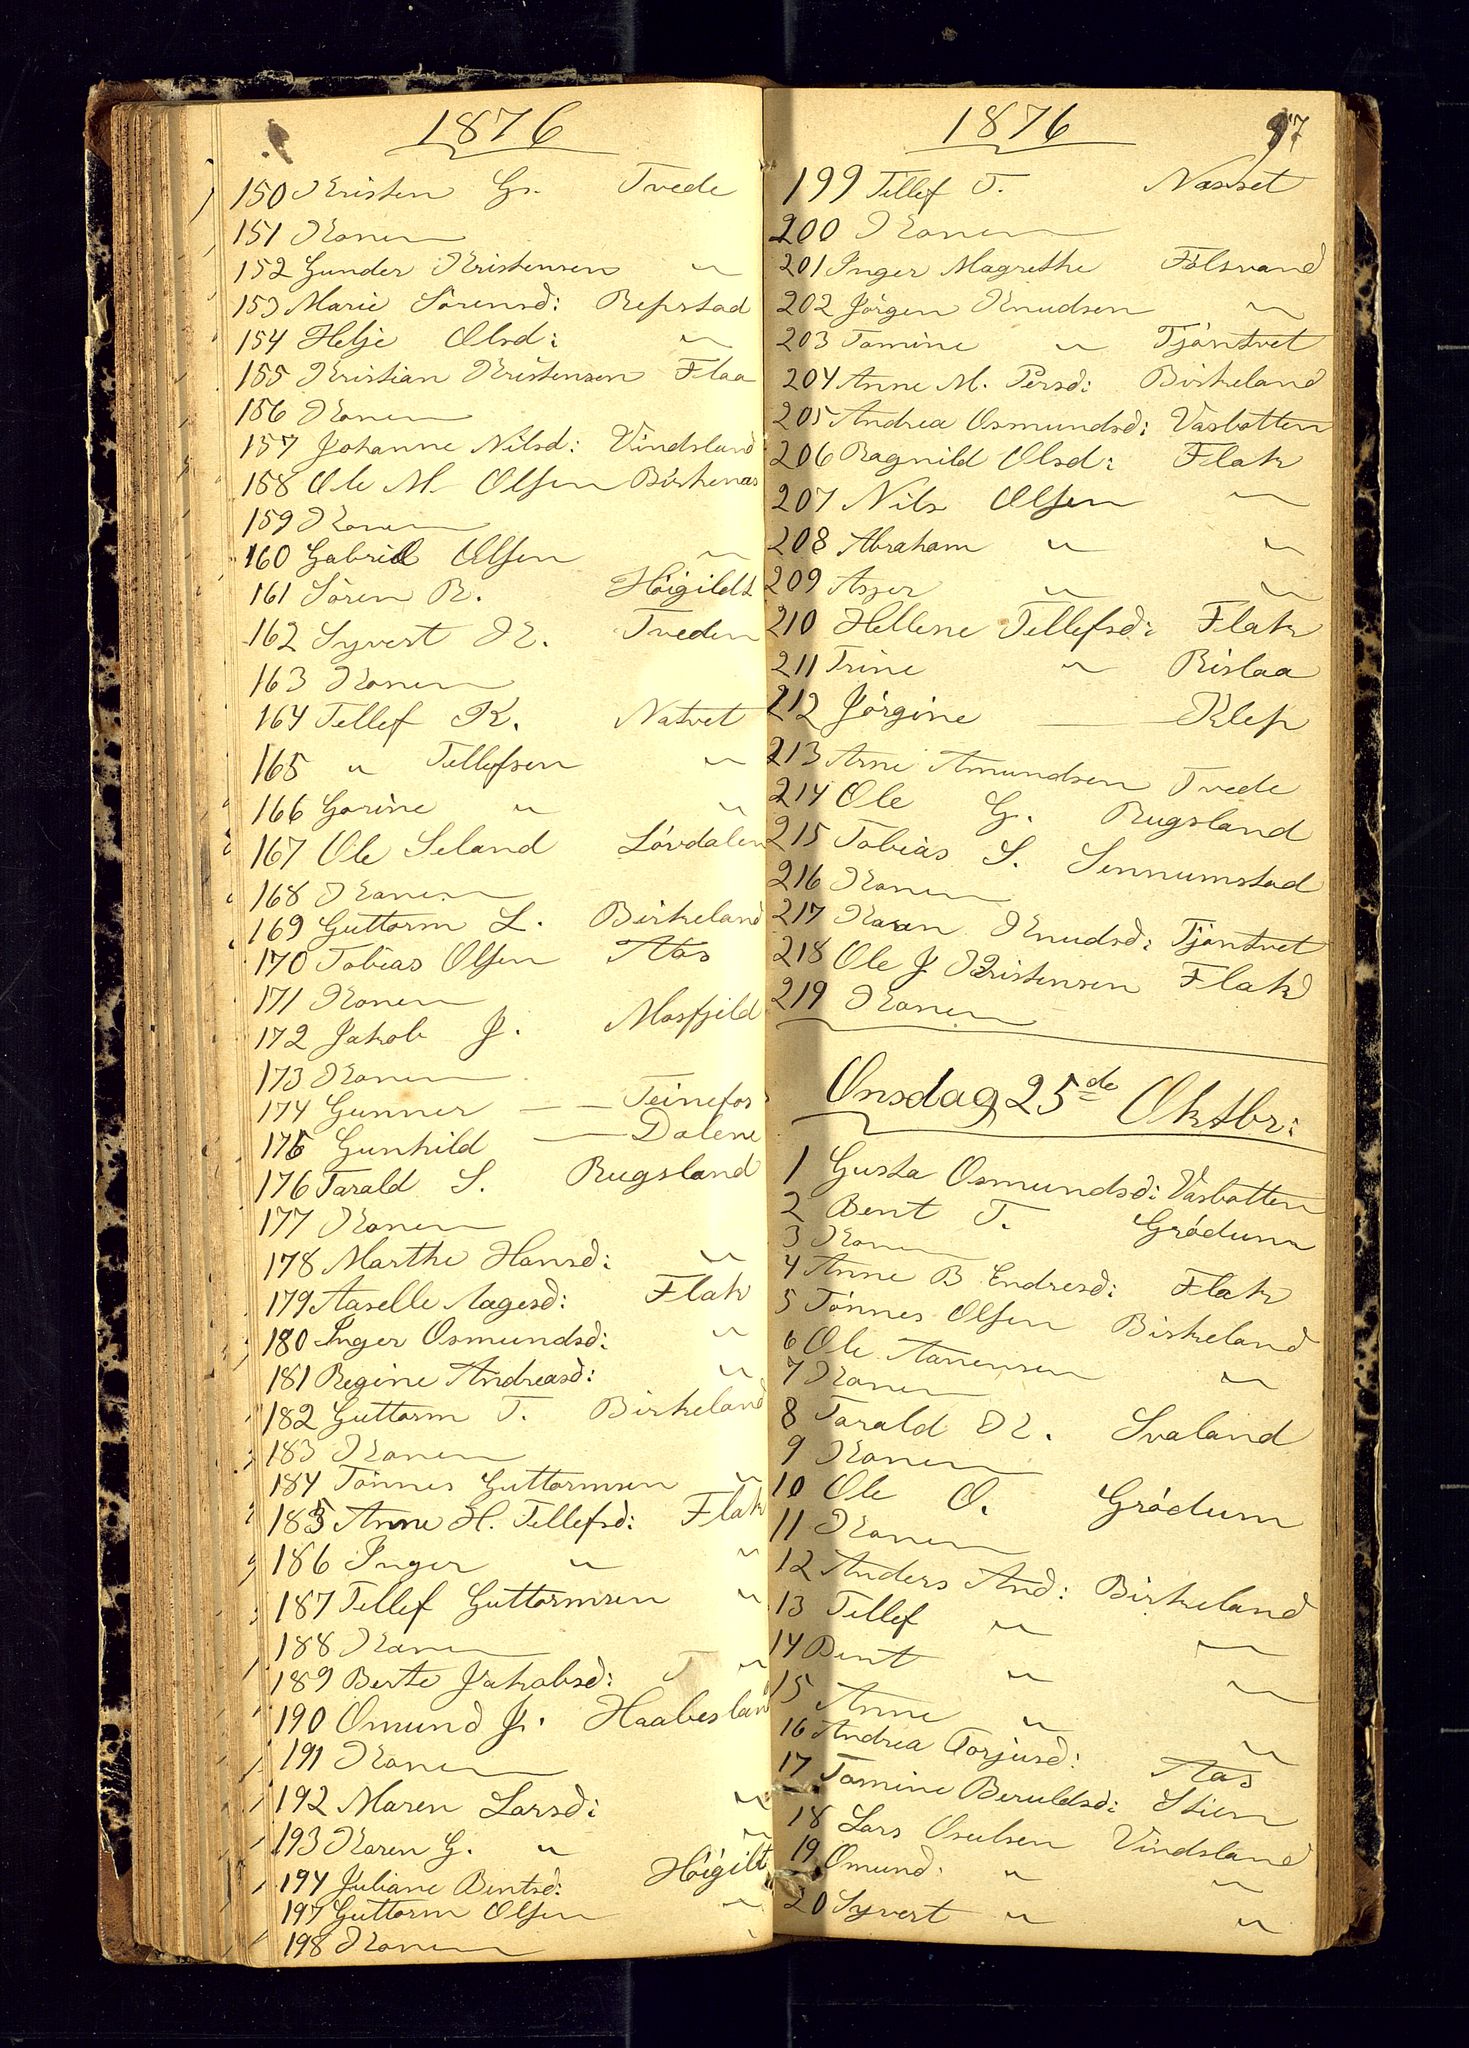 1876
150 Kristen G. Tvede
151 Konen
152 Gunder Kristensen "
153 Marie Sørensd: Repstad
154 Helje Olsd: "
155 Kristian Kristensen Flaa
156 Konen
157 Johanne Nilsd: Vindsland
158 Ole M Olsen Birkenæs
159 Konen
160 Gabriel Olsen "
161 Søren R. Høigildt
162 Syvert K. Tveden
163 Konen
164 Tellef K. Natvet
165 " Tellefsen "
166 Gorine " "
167 Ole Seland Løvdalen
168 Konen
169 Guttorm L. Birkeland
170 Tobias Olsen Aas
171 Konen
172 Jakob J. Mosfjeld
173 Konen
174 Gunner — — Teinefos
175 Gunhild — Dalene
176 Tarald S. Rugsland
177 Konen
178 Marthe Hansd: "
179 Aaselle Aagesd: Flak
180 Inger Osmundsd: "
181 Regine Andreasd: "
182 Guttorm T. Birkeland
183 Konen
184 Tønnes Guttormsen "
185 Anne H. Tellefsd: Flak
186 Inger " "
187 Tellef Guttormsen "
188 Konen
189 Berte Jakobsd: "
190 Omund J. Haabesland
191 Konen
192 Maren Larsd: "
193 Karen G. " "
194 Juliane Bentsd: Høigilt
197 Guttorm Olsen "
198 Konen
1876 97
199 Tellef T. Næsset
200 Konen
201 Inger Magrethe Følsvand
202 Jørgen Knudsen "
203 Tomine " Tjøntvet
204 Anne M. Persd: Birkeland
205 Andrea Osmundsd: Vasbotten
206 Ragnild Olsd: Flak
207 Nils Olsen "
208 Abraham " "
209 Asjer " "
210 Hellene Tellefsd: Flak
211 Trine " Rislaa
212 Jørgine — Klep
213 Arne Amundsen Tvede
214 Ole G. Rugsland
215 Tobias S. Sennumstad
216 Konen
217 Karen Knudsd: Tjøntvet
218 Ole J Kristensen Flak
219 Konen
Onsdag 25de Oktbr:
1 Gusta Osmundsd: Vasbotten
2 Bent T. Grødum
3 Konen
4 Anne B Endresd: Flak
5 Tønnes Olsen Birkeland
6 Ole Aanensen "
7 Konen
8 Tarald K. Svaland
9 Konen
10 Ole O. Grødum
11 Konen
12 Anders And: Birkeland
13 Tellef " "
14 Bent " "
15 Anne " "
16 Andrea Torjusd: Aas
17 Tomine Beruldsd: Stien
18 Lars Osulsen Vindsland
19 Omund: " "
20 Syvert " "